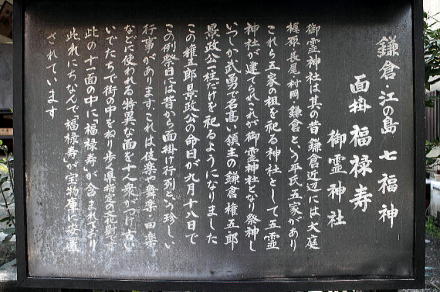 鎌倉・江の島 七福神
面掛 福禄寿
御霊神社
御霊神社は其の昔鎌倉近辺には大庭
梶原長尾村岡鎌倉という平氏五家があり
これら五家の祖を祀る神社として五霊
神社が建てられたが御霊神社となり祭神も
いつか武勇で名高い領主の鎌倉権五郎
景政公一柱だけを祀るようになりました
この権五郎景政公の命日が九月十八日で
この例祭日には昔から面掛け行列という珍しい
行事があります これは伎楽や舞楽、田楽
などに使われる特異な面を十人衆がつけ古い
いでたちで街の中をねり歩く県指定の文化財です
此の十一面の中に「福禄寿」が含まれており
此れにちなんで「福禄寿」が宝物庫に安置
されています